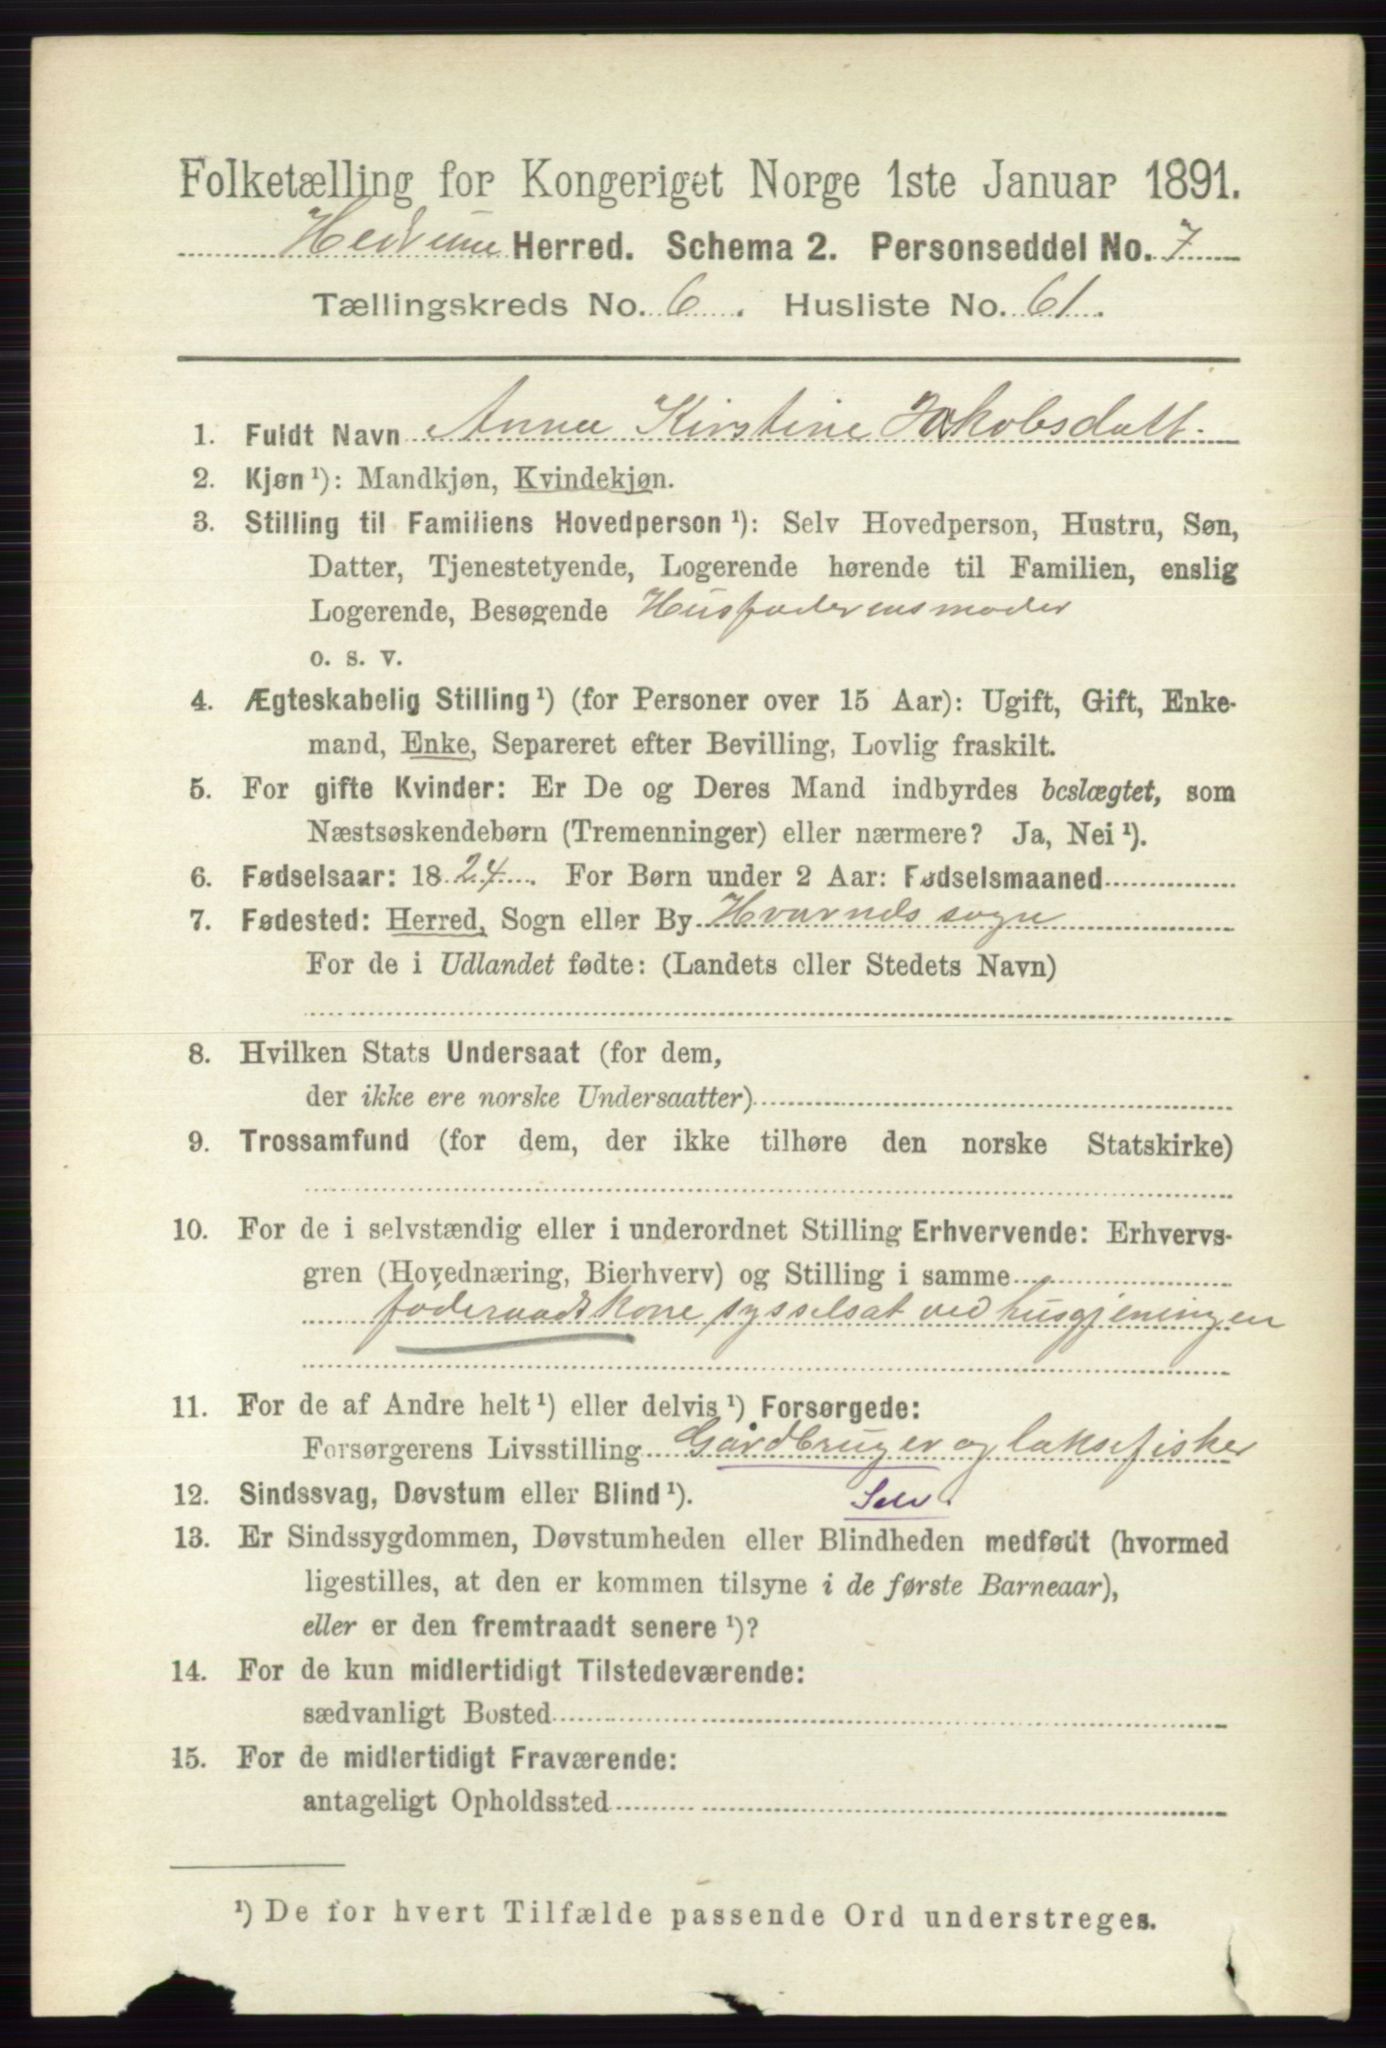 Folketælling for Kongeriget Norge 1ste Januar 1891.
Hedrum Herred. Schema 2. Personseddel No. 7
Tællingskreds No. 6. Husliste No. 61.
1. Fuldt Navn Anna Kirstine Jakobsdatt.
2. Kjøn¹): Mandkjøn, Kvindekjøn.
3. Stilling til Familiens Hovedperson¹): Selv Hovedperson, Hustru, Søn,
Datter, Tjenestetyende, Logerende hørende til Familien, enslig
Logerende, Besøgende Husfaderens moder
o. s. v.
4. Ægteskabelig Stilling¹) (for Personer over 15 Aar): Ugift, Gift, Enke-
mand, Enke, Separeret efter Bevilling, Lovlig fraskilt.
5. For gifte Kvinder: Er De og Deres Mand indbyrdes beslægtet, som
Næstsøskendebørn (Tremenninger) eller nærmere? Ja, Nei¹).
6. Fødselsaar: 1824. For Børn under 2 Aar: Fødselsmaaned
7. Fødested: Herred, Sogn eller By Hvarnes sogn
For de i Udlandet fødte: (Landets eller Stedets Navn)
8. Hvilken Stats Undersaat (for dem,
der ikke ere norske Undersaatter)
9. Trossamfund (for dem, der ikke tilhøre den norske Statskirke)
10. For de i selvstændig eller i underordnet Stilling Erhvervende: Erhvervs-
gren (Hovednæring, Bierhverv) og Stilling i samme
føderaadskone sysselsat ved husgjerningen
11. For de af Andre helt¹) eller delvis¹) Forsørgede:
Forsørgerens Livsstilling Gårdbruger og laksefisker
12. Sindssvag, Døvstum eller Blind¹). Selv.
13. Er Sindssygdommen, Døvstumheden eller Blindheden medfødt (hvormed
ligestilles, at den er kommen tilsyne i de første Barneaar),
eller er den fremtraadt senere¹)?
14. For de kun midlertidigt Tilstedeværende:
sædvanligt Bosted
15. For de midlertidigt Fraværende:
antageligt Opholdssted
¹) De for hvert Tilfælde passende Ord understreges.